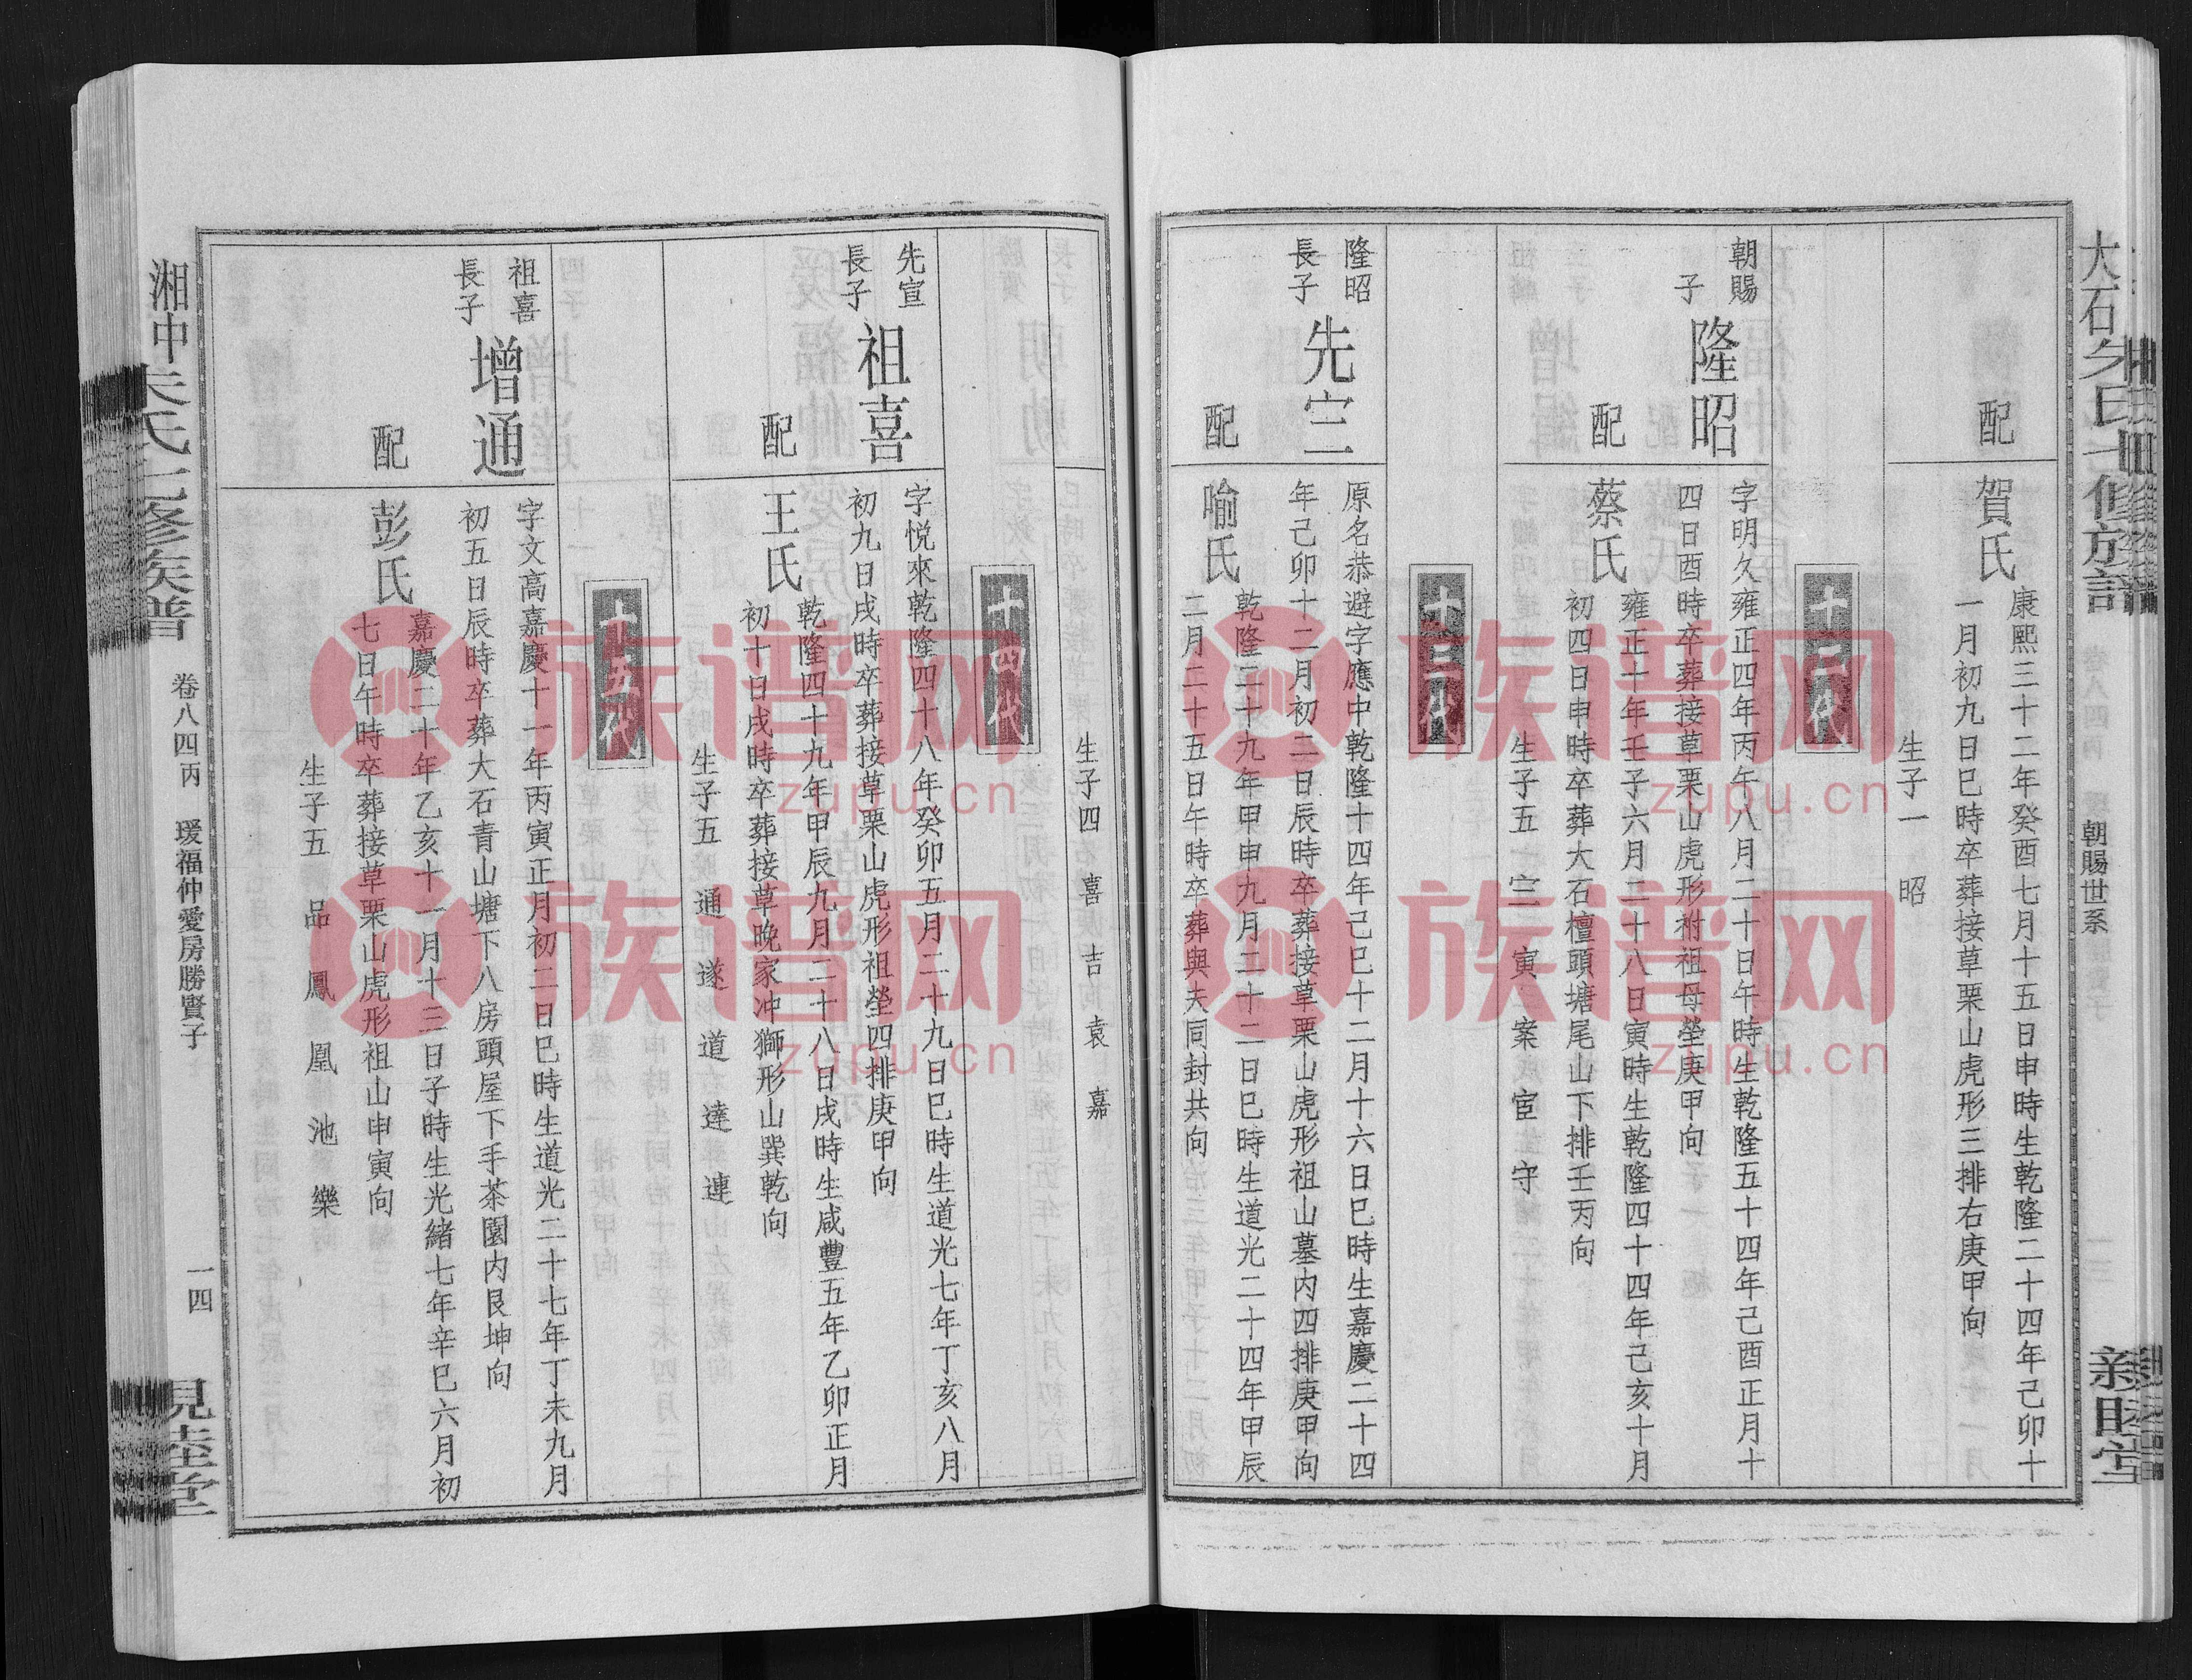 大石朱氏七修族譜
朝賜世系
親睦堂
配
賀氏
康熙三十二年癸酉七月十五日申時生乾隆二十四年己卯十
一月初九日巳時卒葬接草栗山虎形三排右庚甲向
生子一 昭
十二代
朝賜
子
隆昭
字明久雍正四年丙午八月二十日午時生乾隆五十四年己酉正月十
四日酉時卒葬接草栗山虎形祔祖母塋庚甲向
配
蔡氏
雍正十年壬子六月二十八日寅時生乾隆四十四年己亥十月
初四日申時卒葬大石檀頭塘尾山下排壬丙向
生子五 宣 寅 案 宦 守
十三代
隆昭
長子
先宣
原名恭避字應中乾隆十四年己巳十二月十六日巳時生嘉慶二十四
年己卯十二月初二日辰時卒葬接草栗山虎形祖山墓内四排庚甲向
配
喻氏
乾隆二十九年甲申九月二十二日巳時生道光二十四年甲辰
二月二十五日午時卒葬與夫同封共向
生子四 喜 吉 袁 嘉
十四代
先宣
長子
祖喜
字悦來乾隆四十八年癸卯五月二十九日巳時生道光七年丁亥八月
初九日戌時卒葬接草栗山虎形祖塋四排庚甲向
配
王氏
乾隆四十九年甲辰九月二十八日戌時生咸豐五年乙卯正月
初十日戌時卒葬接草晚家冲獅形山巽乾向
生子五 通 遂 道 達 連
十五代
祖喜
長子
增通
字文高嘉慶十一年丙寅正月初二日巳時生道光二十七年丁未九月
初五日辰時卒葬大石青山塘下八房頭屋下手茶園内艮坤向
配
彭氏
嘉慶二十年乙亥十一月十三日子時生光緒七年辛巳六月初
七日午時卒葬接草栗山虎形祖山申寅向
生子五 品 鳳 凰 池 樂
湘中朱氏七修族譜
卷八四丙 瑗福仲愛房勝賢子
一四
親睦堂
族谱网
zupu.cn
族谱网
zupu.cn
族谱网
zupu.cn
族谱网
zupu.cn